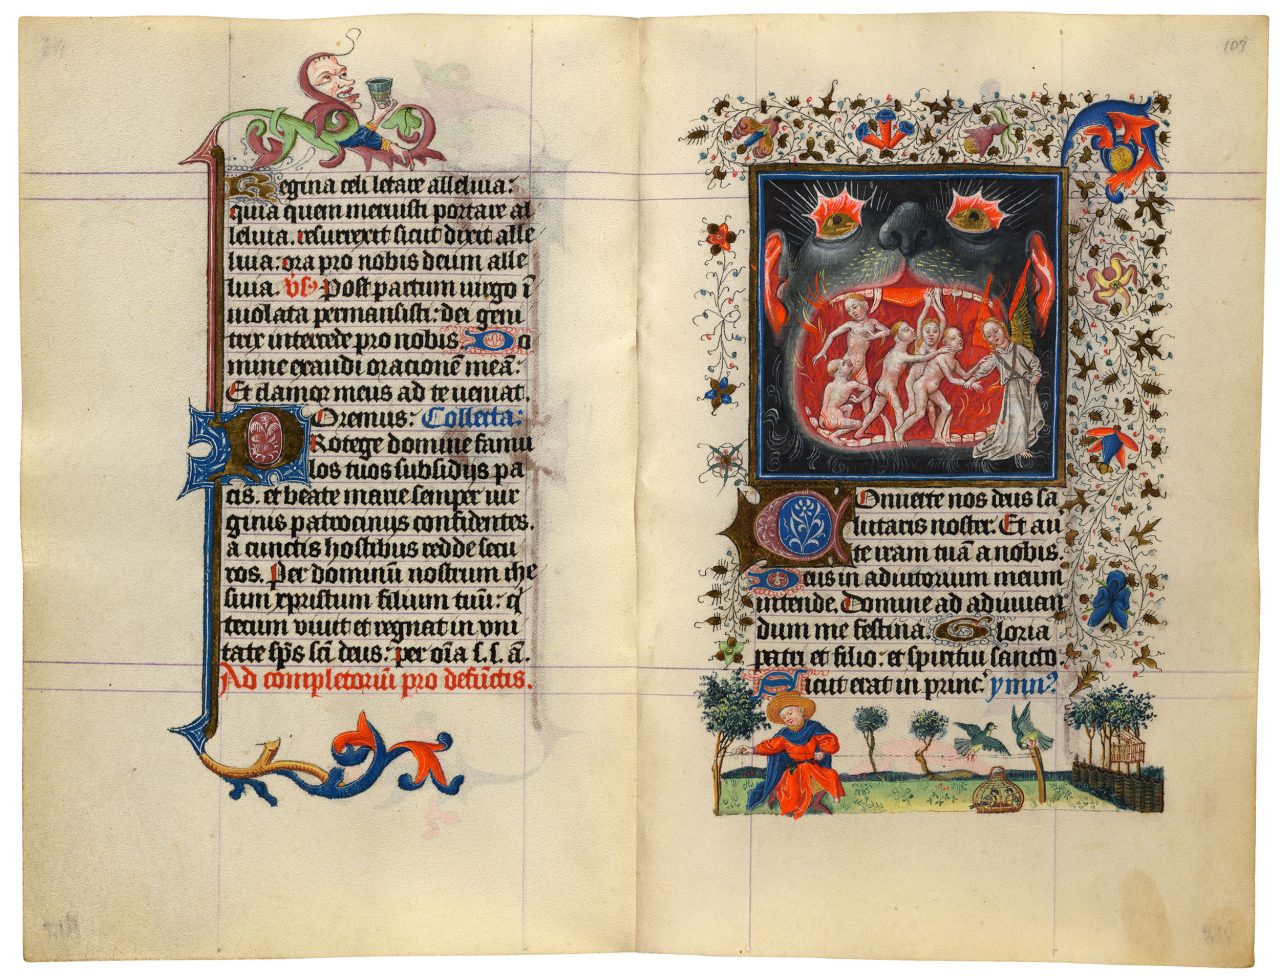 Regina celi letare alleluia:
quia quem meruisti portare al
leluia. resurrexit sicut dixit alle
luia: ora pro nobis deum alle
luia. Vs Post partum uirgo ī
uiolata permansisti: dei geni
trix intercede pro nobis. Do
mine exaudi orationē meā:
Et clamor meus ad te ueniat.
Oremus: Collecta:
Protege domine famu
los tuos subsidijs pa
cis. et beate marie semper uir
ginis patrocinijs confidentes.
a cunctis hostibus redde secu
ros. Per dominū nostrum ihe
sum xpristum filium tuū: q̄
tecum viuit et regnat in vni
tate sp̄s sc̄i deus: per oīa s. s. ā.
Ad completoriū pro defūctis.
107
Conuerte nos deus sa
lutaris noster. Et au
te iram tuā a nobis.
Deus in adiutorium meum
intende. Domine ad adiuuan
dum me festina. Gloria
patri et filio: et spiritui sancto.
Sicut erat in princ. ymn9